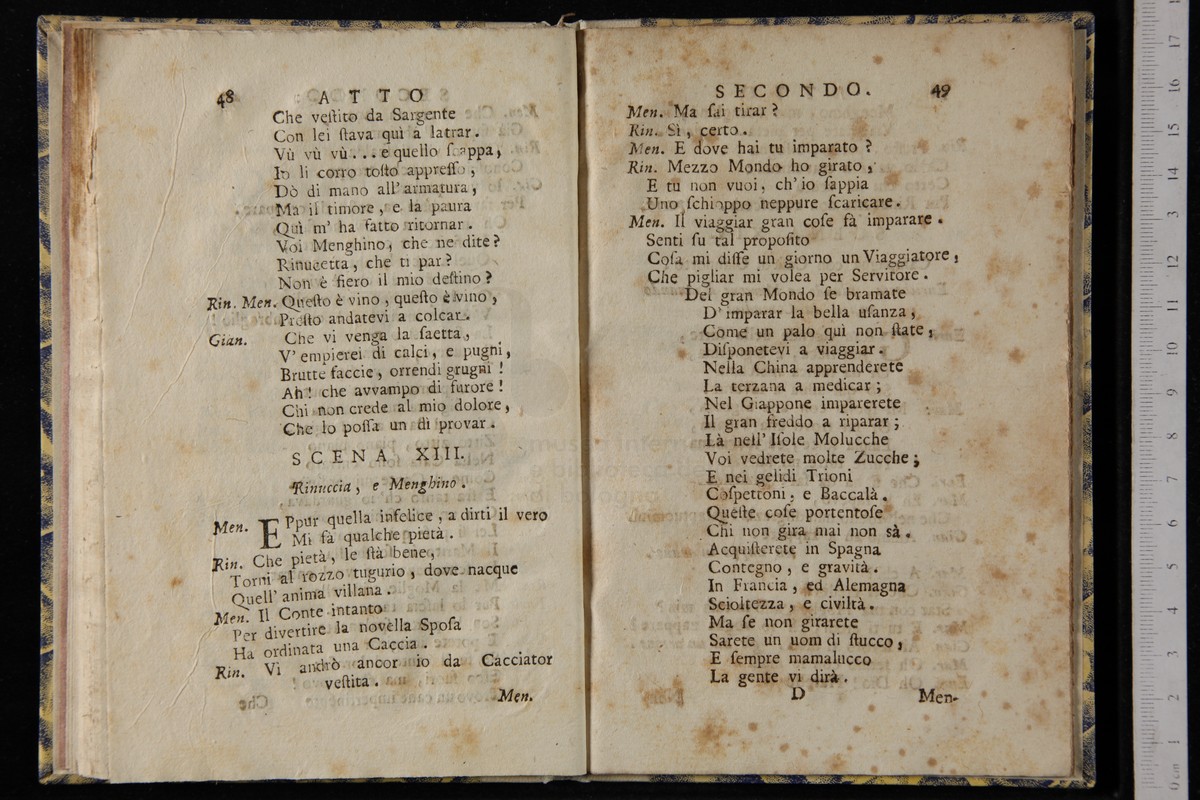 48 ATTO
Che veſtito da Sargente
Con lei ſtava quì a latrar.
Vù vù vù... e quello ſcappa,
Io li corro toſto appreſſo,
Dò di mano all' armatura,
Ma il timore, e la paura
Quì m' ha fatto ritornar.
Voi Menghino, che ne dite?
Rinuccetta, che ti par?
Non è fiero il mio deſtino?
Rin. Men. Queſto è vino, queſto è vino,
Preſto andatevi a colcar.
Gian. Che vi venga la ſaetta,
V' empierei di calci, e pugni,
Brutte faccie, orrendi grugni!
Ah! che avvampo di furore!
Chi non crede al mio dolore,
Che lo poſſa un dì provar.
SCENA XIII.
Rinuccia, e Menghino.
Men. EPpur quella infelice, a dirti il vero
Mi fà qualche pietà.
Rin. Che pietà, le ſtà bene,
Torni al rozzo tugurio, dove nacque
Quell' anima villana.
Men. Il Conte intanto
Per divertire la novella Spoſa
Ha ordinata una Caccia.
Rin. Vi andrò ancor io da Cacciator
veſtita.
Men.
SECONDO. 49
Men. Ma ſai tirar?
Rin. Sì, certo.
Men. E dove hai tu imparato?
Rin. Mezzo Mondo ho girato,
E tu non vuoi, ch' io ſappia
Uno ſchioppo neppure ſcaricare.
Men. Il viaggiar gran coſe fà imparare.
Senti ſu tal propoſito
Coſa mi diſſe un giorno un Viaggiatore,
Che pigliar mi volea per Servitore.
Del gran Mondo ſe bramate
D' imparar la bella uſanza,
Come un palo quì non ſtate,
Diſponetevi a viaggiar.
Nella China apprenderete
La terzana a medicar;
Nel Giappone imparerete
Il gran freddo a riparar;
Là nell' Iſole Molucche
Voi vedrete molte Zucche;
E nei gelidi Trioni
Coſpettoni, e Baccalà.
Queſte coſe portentoſe
Chi non gira mai non sà.
Acquiſterete in Spagna
Contegno, e gravità.
In Francia, ed Alemagna
Scioltezza, e civiltà.
Ma ſe non girarete
Sarete un uom di ſtucco,
E ſempre mamalucco
La gente vi dirà.
D Men-